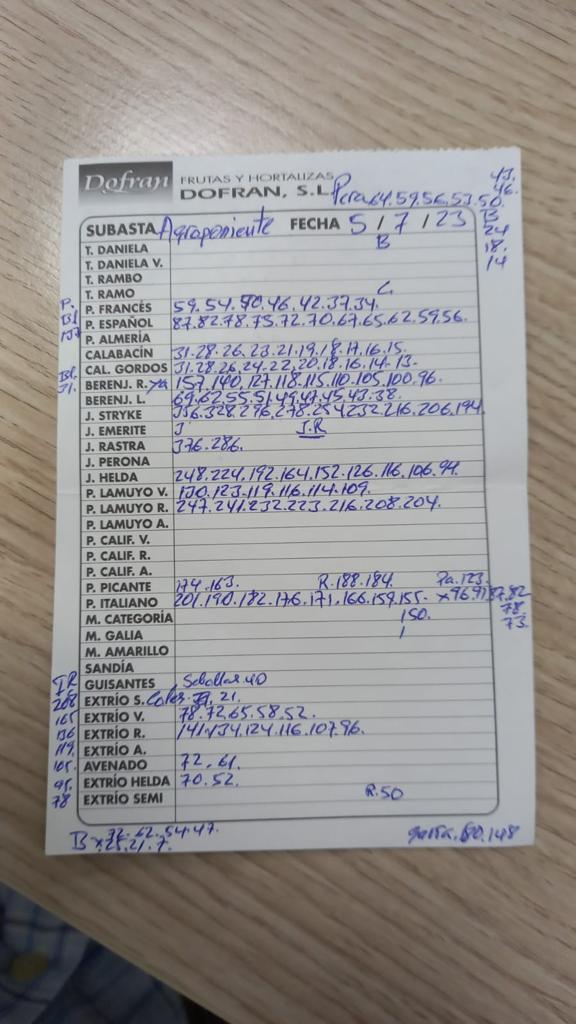 Dofran FRUTAS Y HORTALIZAS
DOFRAN, S.L. Pera 64.59.56.53.50.
43.
46.
SUBASTA Agroponiente FECHA 5/7/23
B
24
18.
14
T. DANIELA B
T. DANIELA V.
T. RAMBO
T. RAMO
P. FRANCÉS 59.54.50.46.42.37.34.
P. ESPAÑOL 87.82.78.75.72.70.67.65.62.59.56.
P. ALMERÍA
CALABACÍN 31.28.26.23.21.19.18.17.16.15.
CAL. GORDOS 31.28.26.24.22.20.18.16.14.13.
BERENJ. R. 157.140.127.118.115.110.105.100.96.
BERENJ. L. 69.62.55.51.49.47.45.43.38.
J. STRYKE 336.328.296.278.254.232.216.206.194.
J. EMERITE J J.R
J. RASTRA 376.286.
J. PERONA
J. HELDA 248.224.192.164.152.126.116.106.94.
P. LAMUYO V. 130.123.119.116.114.109.
P. LAMUYO R. 247.241.232.223.216.208.204.
P. LAMUYO A.
P. CALIF. V.
P. CALIF. R.
P. CALIF. A.
P. PICANTE 174.163. R.188.184. Pa.123.
P. ITALIANO 201.190.182.176.171.166.159.155. x96.91.87.82
78
73.
M. CATEGORÍA 150.
M. GALIA 1
M. AMARILLO
SANDÍA
GUISANTES 40
EXTRÍO S. 21.
EXTRÍO V. 78.72.65.58.52.
EXTRÍO R. 141.134.124.116.107.96.
EXTRÍO A.
AVENADO 72.61.
EXTRÍO HELDA 70.52.
EXTRÍO SEMI R.50
208
165
136
119.
105.
95.
78
B 62.54.47.
x25.21.7.
148